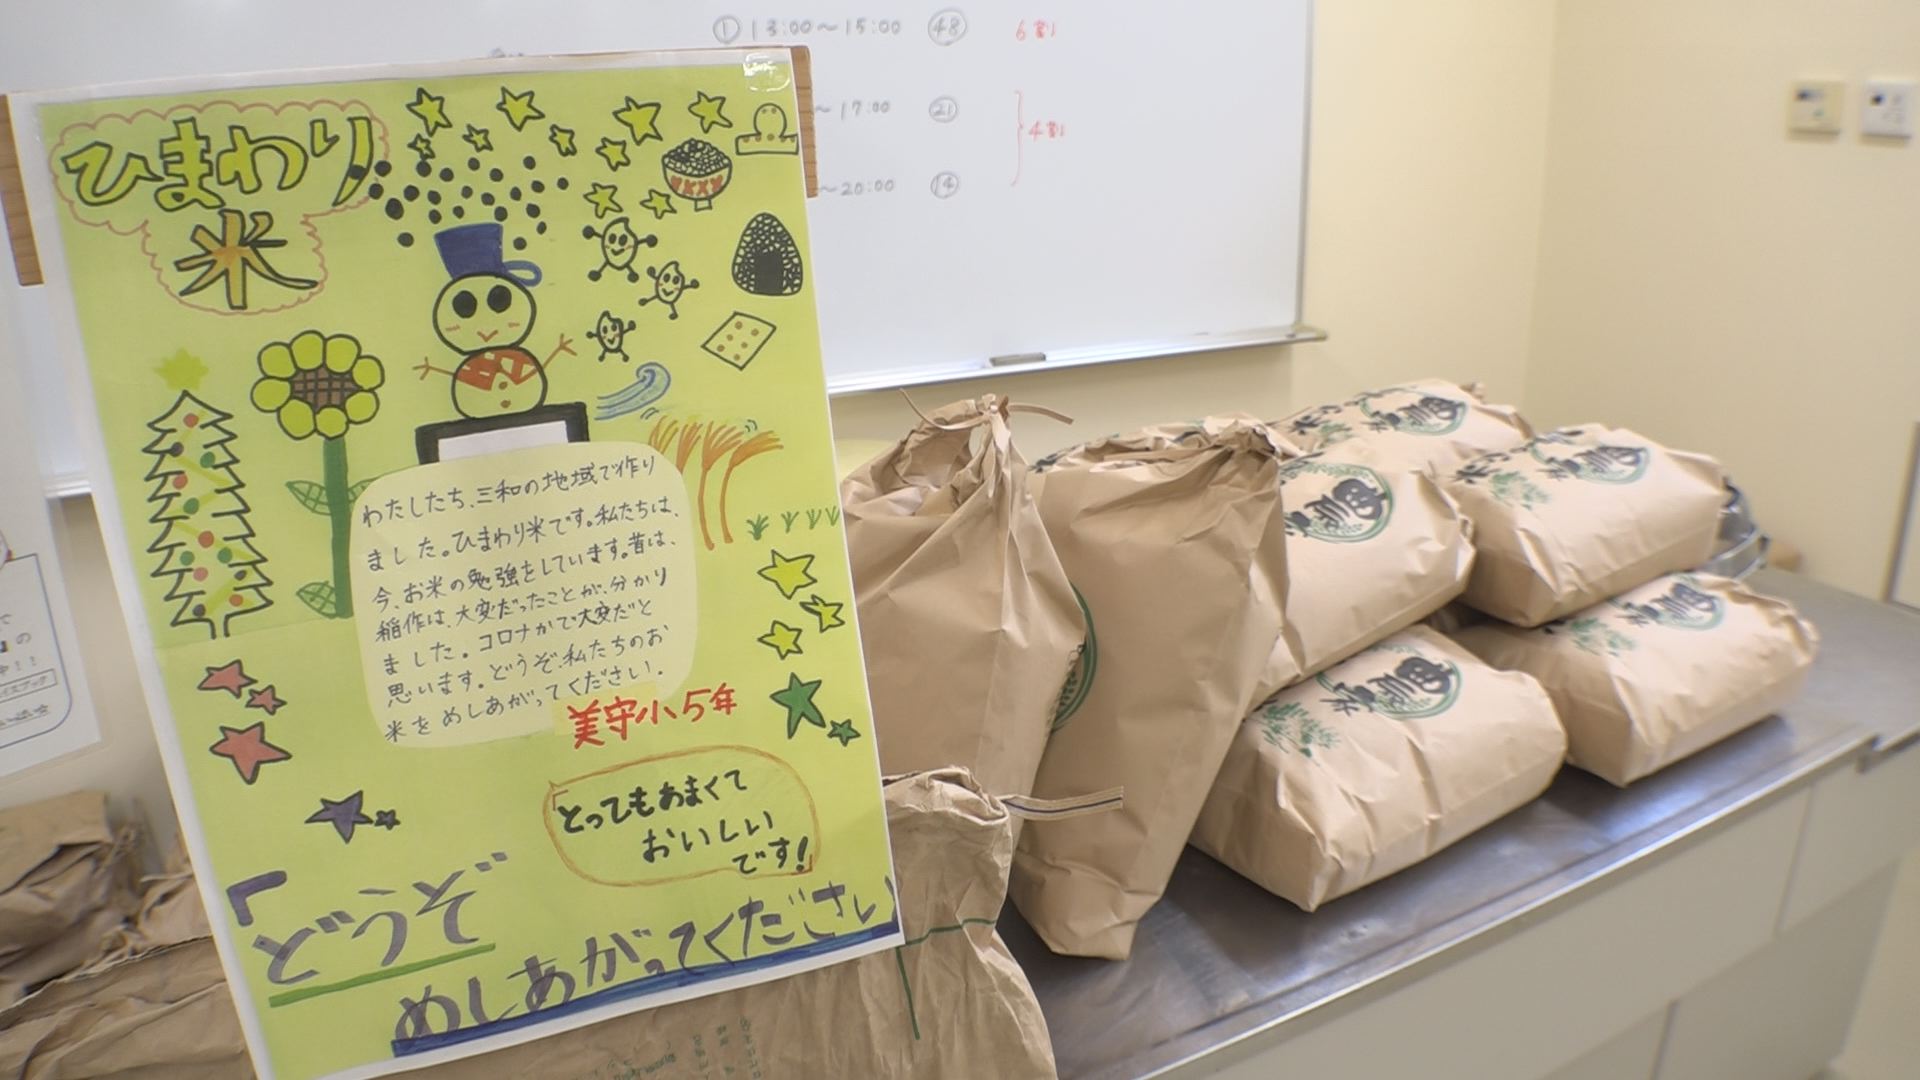 ひまわり
米
わたしたち、三和の地域で作り
ました。ひまわり米です。私たちは、
今、お米の勉強をしています。昔は、
稲作は、大変だったことが、分かり
ました。コロナかで大変だと
思います。どうぞ、私たちのお
米をめしあがってください。
美守小5年
「とってもあまくて
おいしい
です!」
「どうぞ
めしあがってください
① 13:00～15:00 ㊽ 6割
～17:00 ㉑
4割
～20:00 ⑭